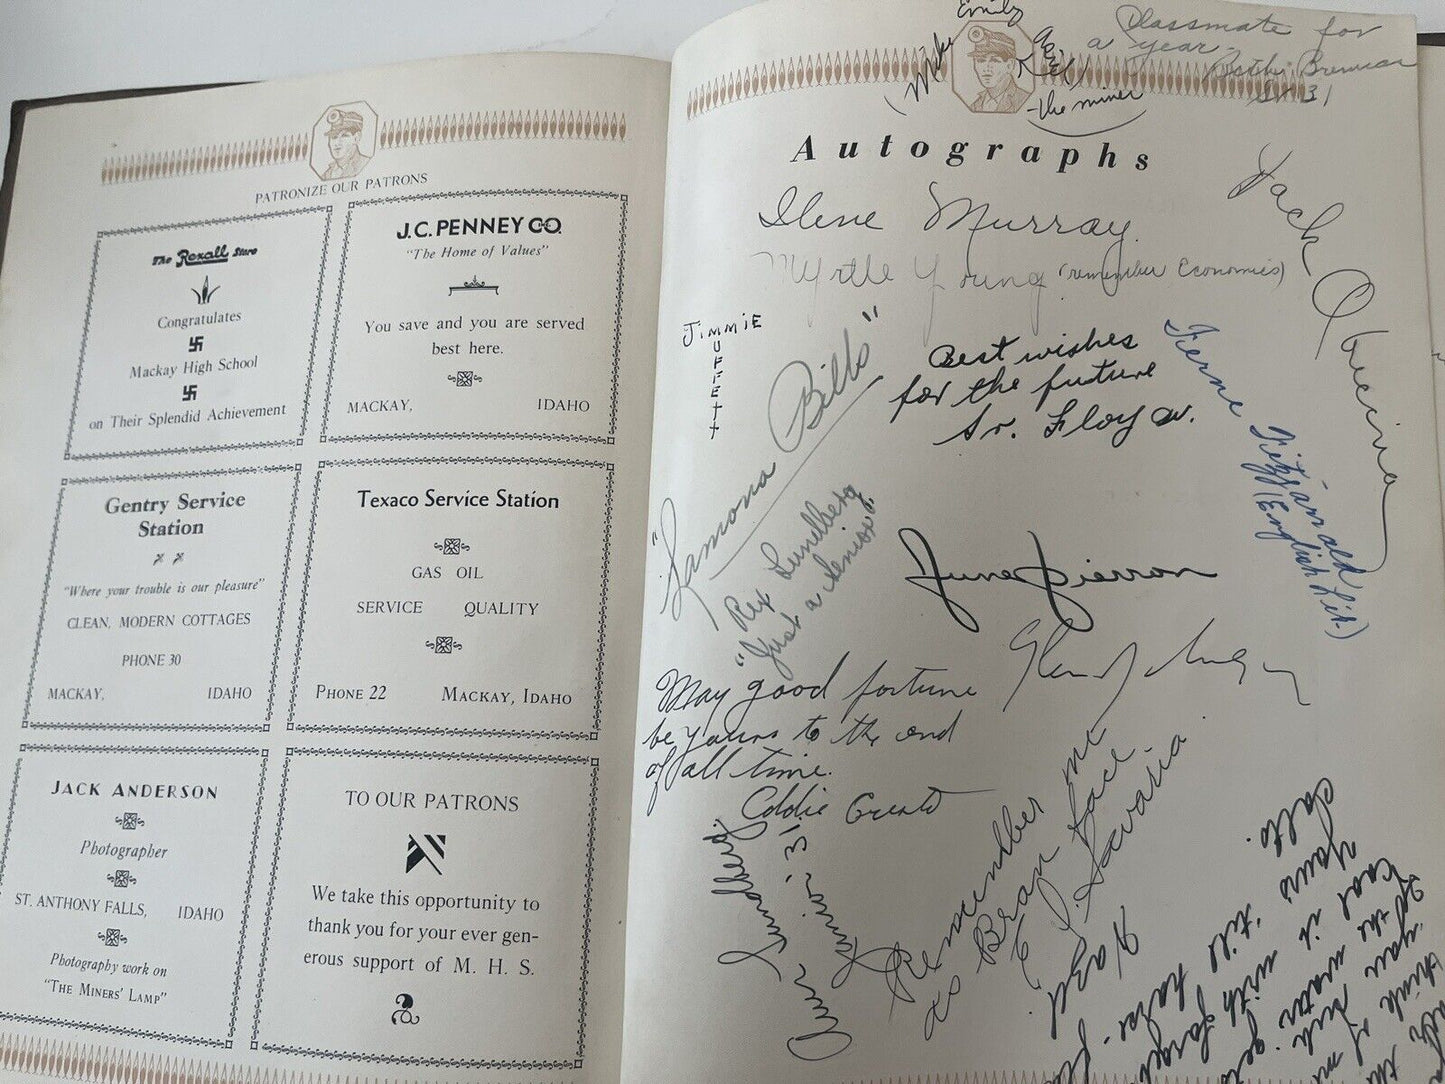 PATRONIZE OUR PATRONS
The Rexall Store
Congratulates
卐
Mackay High School
卐
on Their Splendid Achievement
J.C. PENNEY CO.
"The Home of Values"
You save and you are served
best here.
MACKAY, IDAHO
Gentry Service
Station
"Where your trouble is our pleasure"
CLEAN, MODERN COTTAGES
PHONE 30
MACKAY, IDAHO
Texaco Service Station
GAS OIL
SERVICE QUALITY
PHONE 22 MACKAY, IDAHO
JACK ANDERSON
Photographer
ST. ANTHONY FALLS, IDAHO
Photography work on
"THE MINERS' LAMP"
TO OUR PATRONS
We take this opportunity to
thank you for your ever gen-
erous support of M. H. S.
Emily
Mike
-the miner
Classmate for
a year-
Beth Brennan
Sr 31
Autographs
Ilene Murray
Myrtle Young (remember Economics)
Jack
JimmiE
MUFFETT
"Ramona Bills"
Best wishes
for the future
Sr. Floy W.
Ferne Fitzjarrald
(English Lit.)
Rex Lundberg
"Just a Senior"
June Pierron
May good fortune
be yours to the end
of all time.
Eddie
Lundberg
Junior '31
Remember me
as Bran Face
E L Savaria
Yours
'till